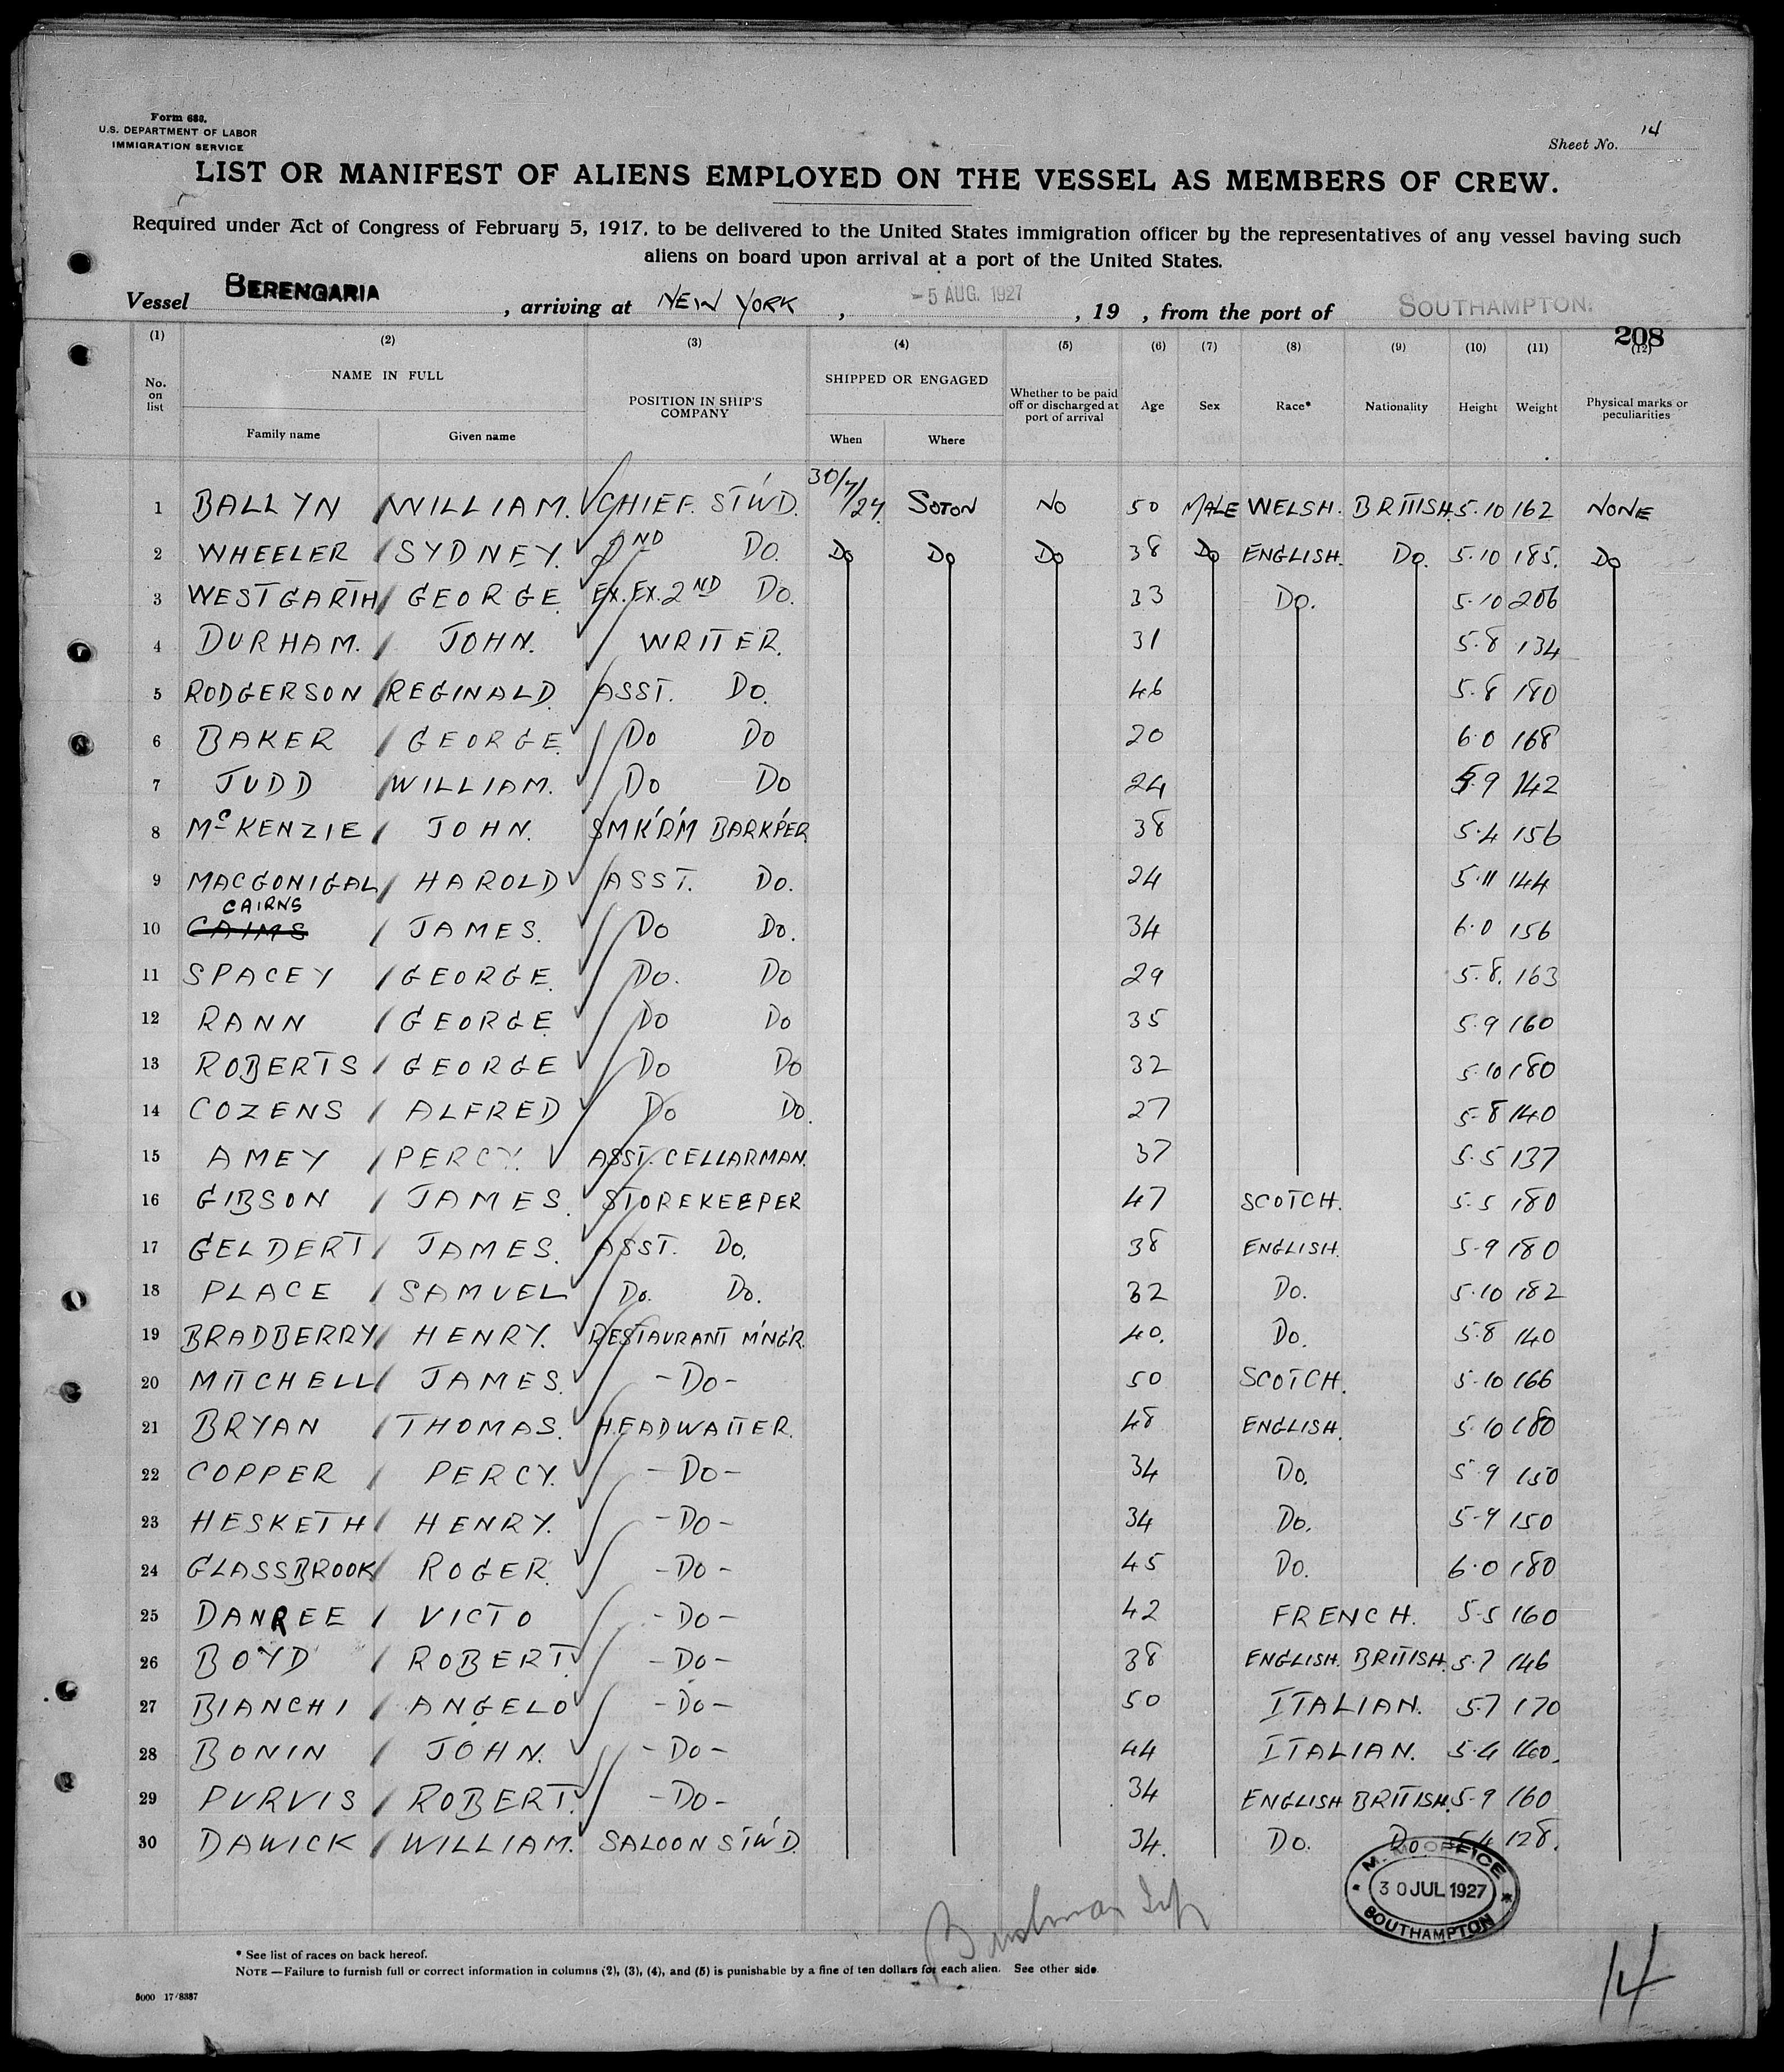 Form 680.
U.S. DEPARTMENT OF LABOR
IMMIGRATION SERVICE
Sheet No. 14
LIST OR MANIFEST OF ALIENS EMPLOYED ON THE VESSEL AS MEMBERS OF CREW.
Required under Act of Congress of February 5, 1917, to be delivered to the United States immigration officer by the representatives of any vessel having such
aliens on board upon arrival at a port of the United States.
Vessel BERENGARIA, arriving at NEW YORK, -5 AUG. 1927, 19 , from the port of SOUTHAMPTON.
208
(1) (2) (3) (4) (5) (6) (7) (8) (9) (10) (11) (12)
No. on list NAME IN FULL POSITION IN SHIP'S COMPANY SHIPPED OR ENGAGED Whether to be paid off or discharged at port of arrival Age Sex Race* Nationality Height Weight Physical marks or peculiarities
Family name Given name When Where
1 BALLYN WILLIAM. CHIEF. STW'D. 30/7/27. SOTON NO 50 MALE WELSH. BRITISH. 5.10 162 NONE
2 WHEELER SYDNEY. 2ND DO. DO DO DO 38 DO ENGLISH. DO. 5.10 185. DO
3 WESTGARTH GEORGE. EX. EX. 2ND DO. 33 DO. 5.10 206
4 DURHAM. JOHN. WRITER. 31 5.8 134
5 RODGERSON REGINALD. ASST. DO. 46 5.8 180
6 BAKER GEORGE. DO DO 20 6.0 168
7 JUDD WILLIAM. DO DO 24 5.9 142
8 McKENZIE JOHN. SMK'R'M BARK'PER 38 5.4 156
9 MACGONIGAL HAROLD ASST. DO. 24 5.11 144
CAIRNS
10 CAIMS JAMES. DO DO. 34 6.0 156
11 SPACEY GEORGE. DO. DO 29 5.8. 163
12 RANN GEORGE DO DO 35 5.9 160
13 ROBERTS GEORGE DO DO 32 5.10 180
14 COZENS ALFRED DO DO. 27 5-8 140
15 AMEY PERCY. ASST. CELLARMAN. 37 5.5 137
16 GIBSON JAMES. STOREKEEPER 47 SCOTCH. 5.5 180
17 GELDERT JAMES. ASST. DO. 38 ENGLISH. 5-9 180
18 PLACE SAMUEL DO. DO. 32 DO. 5.10 182
19 BRADBERRY HENRY. RESTAURANT M'NG'R. 40. DO. 5.8 140
20 MITCHELL JAMES. -DO- 50 SCOTCH. 5-10 166
21 BRYAN THOMAS. HEADWAITER. 48 ENGLISH. 5.10 180
22 COPPER PERCY. -DO- 34 DO. 5.9 150
23 HESKETH HENRY. -DO- 34 DO. 5-9 150
24 GLASSBROOK ROGER. -DO- 45 DO. 6.0 180
25 DANREE VICTO -DO- 42 FRENCH. 5-5 160
26 BOYD ROBERT. -DO- 38 ENGLISH. BRITISH. 5.7 146
27 BIANCHI ANGELO -DO- 50 ITALIAN. 5.7 170
28 BONIN JOHN. -DO- 44 ITALIAN. 5.4 160.
29 PURVIS ROBERT. -DO- 34 ENGLISH BRITISH. 5-9 160
30 DAWICK WILLIAM. SALOON STW'D. 34. DO. DO. 5.4 128.
OFFICE
30 JUL 1927
SOUTHAMPTON
* See list of races on back hereof.
NOTE—Failure to furnish full or correct information in columns (2), (3), (4), and (5) is punishable by a fine of ten dollars for each alien. See other side.
5000 17/8387
14